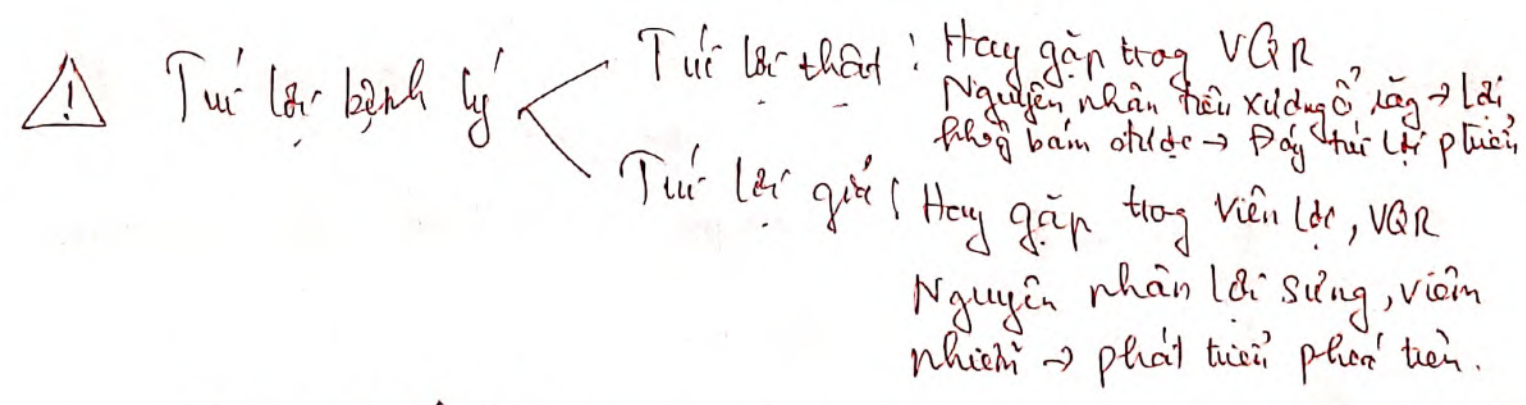 Túi lợi bệnh lý
Túi lợi thật : Hay gặp trog VQR
Nguyên nhân tiêu xương ổ răg → Lợi
khôg bám được → Đáy túi lợi
Túi lợi giả : Hay gặp trog viêm lợi, VQR
Nguyên nhân lợi sưng, viêm
nhiễm → phát triển phía trên.